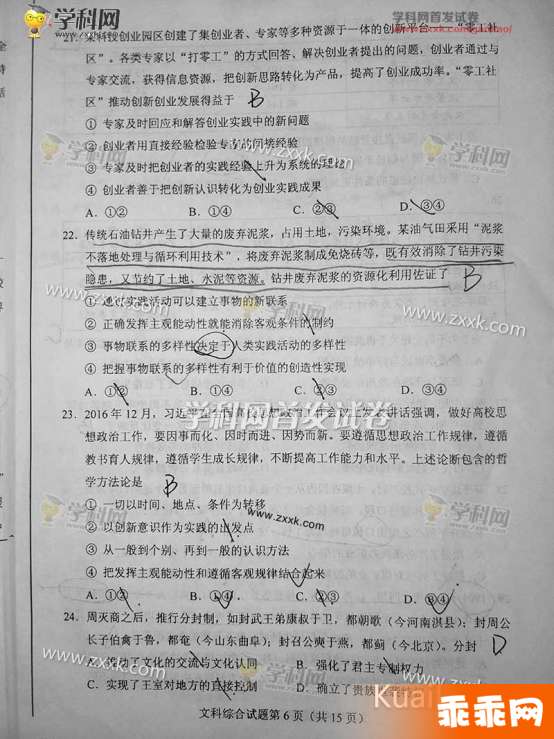 学科网首发试卷
学科网
21. 某科技创业园区创建了集创业者、专家等多种资源于一体的创新平台——“零工社
区”。各类专家以“打零工”的方式回答、解决创业者提出的问题，创业者通过与
专家交流，获得信息资源，把创新思路转化为产品，提高了创业成功率。“零工社
区”推动创新创业发展得益于 B
① 专家及时回应和解答创业实践中的新问题
② 创业者用直接经验检验专家的间接经验
③ 专家及时把创业者的实践经验上升为系统的理论
④ 创业者善于把创新认识转化为创业实践成果
A. ①② B. ①④ C. ②③ D. ③④
22. 传统石油钻井产生了大量的废弃泥浆，占用土地，污染环境。某油气田采用“泥浆
不落地处理与循环利用技术”，将废弃泥浆制成免烧砖等，既有效消除了钻井污染
隐患，又节约了土地、水泥等资源。钻井废弃泥浆的资源化利用佐证了 B
① 通过实践活动可以建立事物的新联系
② 正确发挥主观能动性就能消除客观条件的制约
③ 事物联系的多样性决定于人类实践活动的多样性
④ 把握事物联系的多样性有利于价值的创造性实现
A. ①② B. ①④ C. ②③ D. ③④
23. 2016 年 12 月，习近平在全国高校思想政治工作会议上发表讲话强调，做好高校思
想政治工作，要因事而化、因时而进、因势而新。要遵循思想政治工作规律，遵循
教书育人规律，遵循学生成长规律，不断提高工作能力和水平。上述论断包含的哲
学方法论是 B
① 一切以时间、地点、条件为转移
② 以创新意识作为实践的出发点
③ 从一般到个别、再到一般的认识方法
④ 把发挥主观能动性和遵循客观规律结合起来
A. ①② B. ①④ C. ②③ D. ③④
24. 周灭商之后，推行分封制，如封武王弟康叔于卫，都朝歌（今河南淇县）；封周公
长子伯禽于鲁，都奄（今山东曲阜）；封召公奭于燕，都蓟（今北京）。分封 D
A. 推动了文化的交流与文化认同 B. 强化了君主专制权力
C. 实现了王室对地方的直接控制 D. 确立了贵族
文科综合试题第 6 页（共 15 页）
www.zxxk.com
学科网首发试卷
乖乖网